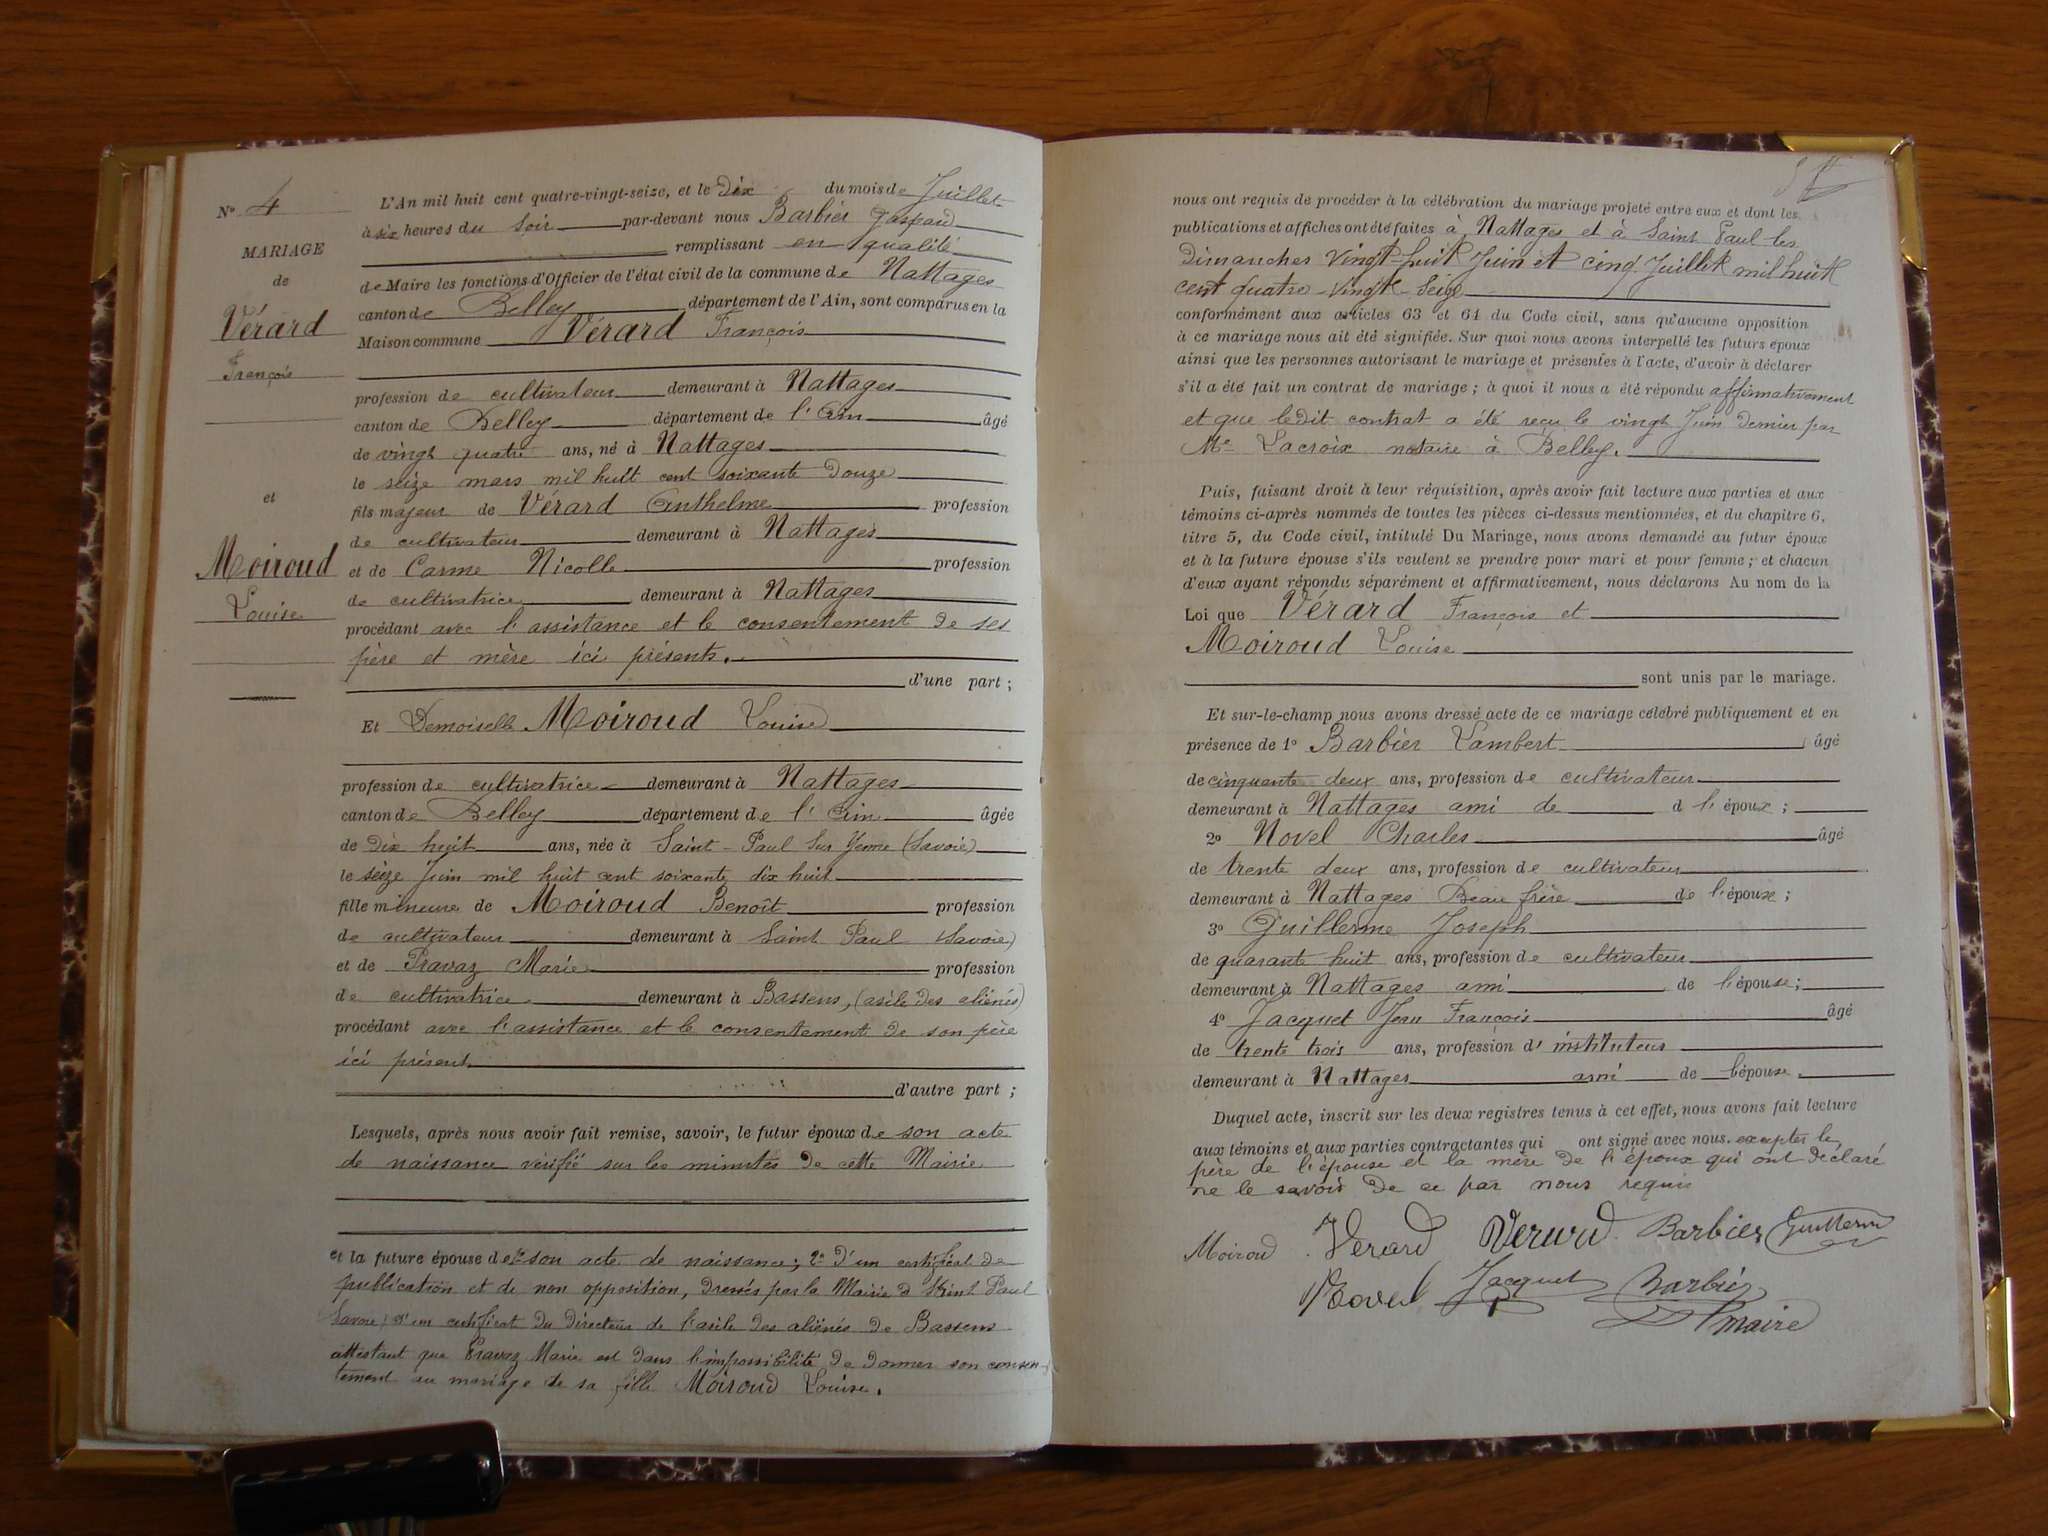 N° 4
MARIAGE
de
Vérard
François
et
Moiroud
Louise
L'An mil huit cent quatre-vingt-seize, et le Dix du mois de Juillet
à six heures du Soir par-devant nous Barbier Gaspard
remplissant en qualité
de Maire les fonctions d'Officier de l'état civil de la commune de Nattages
canton de Belley département de l'Ain, sont comparus en la
Maison commune Vérard François
profession de cultivateur demeurant à Nattages
canton de Belley département de l'Ain âgé
de vingt quatre ans, né à Nattages
le seize mars mil huit cent soixante Douze
fils majeur de Vérard Anthelme profession
de cultivateur demeurant à Nattages
et de Carme Nicolle profession
de cultivatrice demeurant à Nattages
procédant avec l'assistance et le consentement de ses
père et mère ici présents.
d'une part ;
Et Demoiselle Moiroud Louise
profession de cultivatrice demeurant à Nattages
canton de Belley département de l'Ain âgée
de Dix huit ans, née à Saint-Paul Sur Yenne (Savoie)
le seize Juin mil huit cent soixante dix huit
fille mineure de Moiroud Benoît profession
de cultivateur demeurant à Saint Paul (Savoie)
et de Pravaz Marie profession
de cultivatrice demeurant à Bassens, (asile des aliénés)
procédant avec l'assistance et le consentement de son père
ici présent
d'autre part ;
Lesquels, après nous avoir fait remise, savoir, le futur époux de son acte
de naissance vérifié sur les minutes de cette Mairie
et la future épouse de son acte de naissance ; 2° d'un certificat de
publication et de non opposition, dressés par la Mairie d Saint Paul
Savoie ; d'un certificat du Directeur de l'asile des aliénés de Bassens
attestant que Pravaz Marie est dans l'impossibilité de donner son consen-
tement au mariage de sa fille Moiroud Louise.
nous ont requis de procéder à la célébration du mariage projeté entre eux et dont les
publications et affiches ont été faites à Nattages et à Saint Paul les
Dimanches Vingt-huit Juin et cinq Juillet mil huit
cent quatre-vingt-seize
conformément aux articles 63 et 64 du Code civil, sans qu'aucune opposition
à ce mariage nous ait été signifiée. Sur quoi nous avons interpellé les futurs époux
ainsi que les personnes autorisant le mariage et présentes à l'acte, d'avoir à déclarer
s'il a été fait un contrat de mariage ; à quoi il nous a été répondu affirmativement
et que ledit contrat a été reçu le vingt Juin dernier par
Me Lacroix notaire à Belley.
Puis, faisant droit à leur réquisition, après avoir fait lecture aux parties et aux
témoins ci-après nommés de toutes les pièces ci-dessus mentionnées, et du chapitre 6,
titre 5, du Code civil, intitulé Du Mariage, nous avons demandé au futur époux
et à la future épouse s'ils veulent se prendre pour mari et pour femme ; et chacun
d'eux ayant répondu séparément et affirmativement, nous déclarons Au nom de la
Loi que Vérard François et
Moiroud Louise
sont unis par le mariage.
Et sur-le-champ nous avons dressé acte de ce mariage célébré publiquement et en
présence de 1° Barbier Lambert âgé
de cinquante deux ans, profession de cultivateur
demeurant à Nattages ami de d l'époux ;
2° Novel Charles âgé
de trente deux ans, profession de cultivateur
demeurant à Nattages Beau frère de l'épouse ;
3° Guillerme Joseph
de quarante huit ans, profession de cultivateur
demeurant à Nattages ami de l'épouse ;
4° Jacquet Jean François âgé
de trente trois ans, profession d'instituteur
demeurant à Nattages ami de l'épouse.
Duquel acte, inscrit sur les deux registres tenus à cet effet, nous avons fait lecture
aux témoins et aux parties contractantes qui ont signé avec nous. excepter le
père de l'épouse et la mère de l'époux qui ont déclaré
ne le savoir de ce par nous requis
Moiroud Verard Verard Barbier Guillerm
Novel Jacquet Barbier
maire